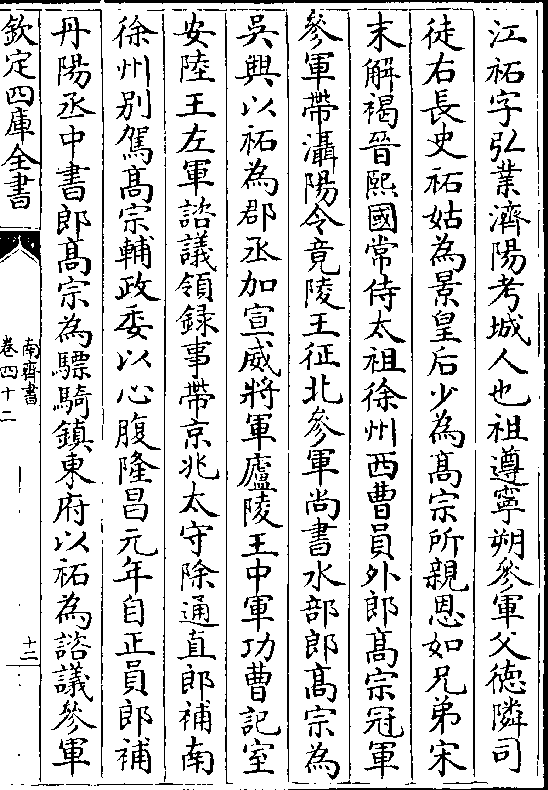 江祏字弘業濟陽考城人也祖遵寧朔參軍父徳隣司
徒右長史祏姑為景皇后少為髙宗所親恩如兄弟宋
末解褐晉熙國常侍太祖徐州西曹員外郎髙宗冠軍
參軍帶灄陽令竟陵王征北參軍尚書水部郎髙宗為
吳興以祏為郡丞加宣威將軍廬陵王中軍功曹記室
安陸王左軍諮議領録事帶京兆太守除通直郎補南
徐州别駕髙宗輔政委以心腹隆昌元年自正員郎補
丹陽丞中書郎髙宗為驃騎鎮東府以祏為諮議參軍
欽定四庫全書
南齊書
卷四十二
十二